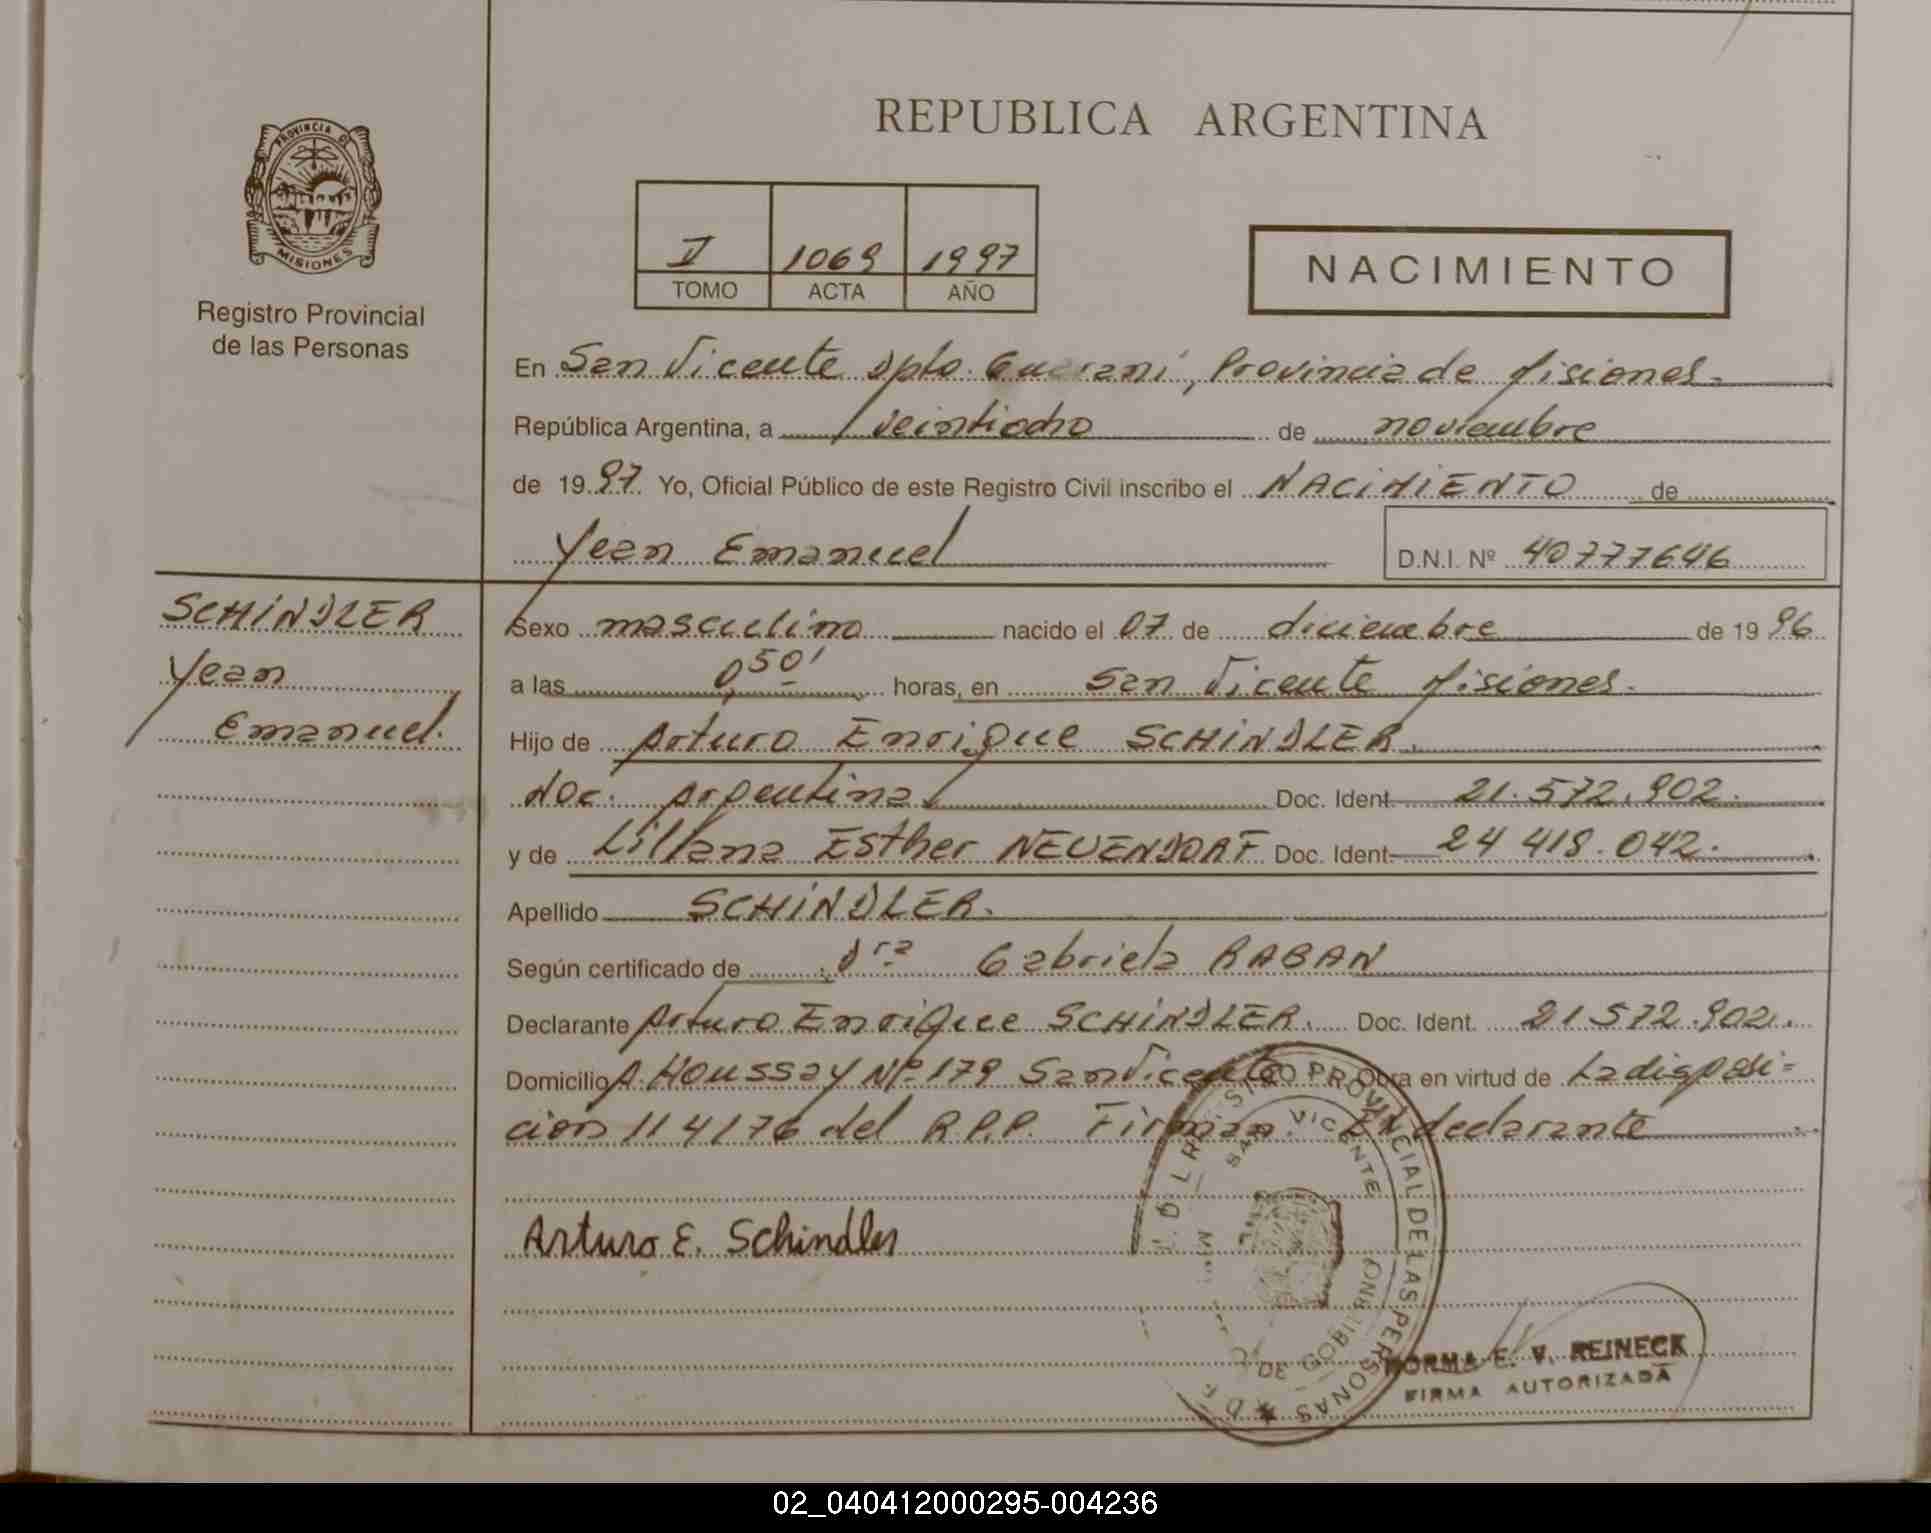 REPUBLICA ARGENTINA
PROVINCIA DE
MISIONES
Registro Provincial
de las Personas
V 1069 1997
TOMO ACTA AÑO
NACIMIENTO
En San Vicente Dpto. Guarani, Provincia de Misiones.
República Argentina, a veintiocho de noviembre
de 1997 Yo, Oficial Público de este Registro Civil inscribo el NACIMIENTO de
Yean Emanuel D.N.I. Nº 40777646
SCHINDLER
Yean
Emanuel.
Sexo masculino nacido el 07 de diciembre de 1996
a las 0,50' horas, en San Vicente Misiones.
Hijo de Arturo Enrique SCHINDLER.
nac. Argentina Doc. Ident 21.572.902.
y de Liliana Esther NEUENDORF Doc. Ident 24 418.042.
Apellido SCHINDLER.
Según certificado de Dra Gabriela RABAN
Declarante Arturo Enrique SCHINDLER. Doc. Ident. 21.572.902.
Domicilio A. Houssay Nº 179 San Vicente Obra en virtud de La disposi=
cion 114176 del R.P.P. Firman. El declarante
Arturo E. Schindler
PROVINCIAL DE LAS PERSONAS
SAN VICENTE
NORMA E. V. REINECK
FIRMA AUTORIZADA
02_040412000295-004236